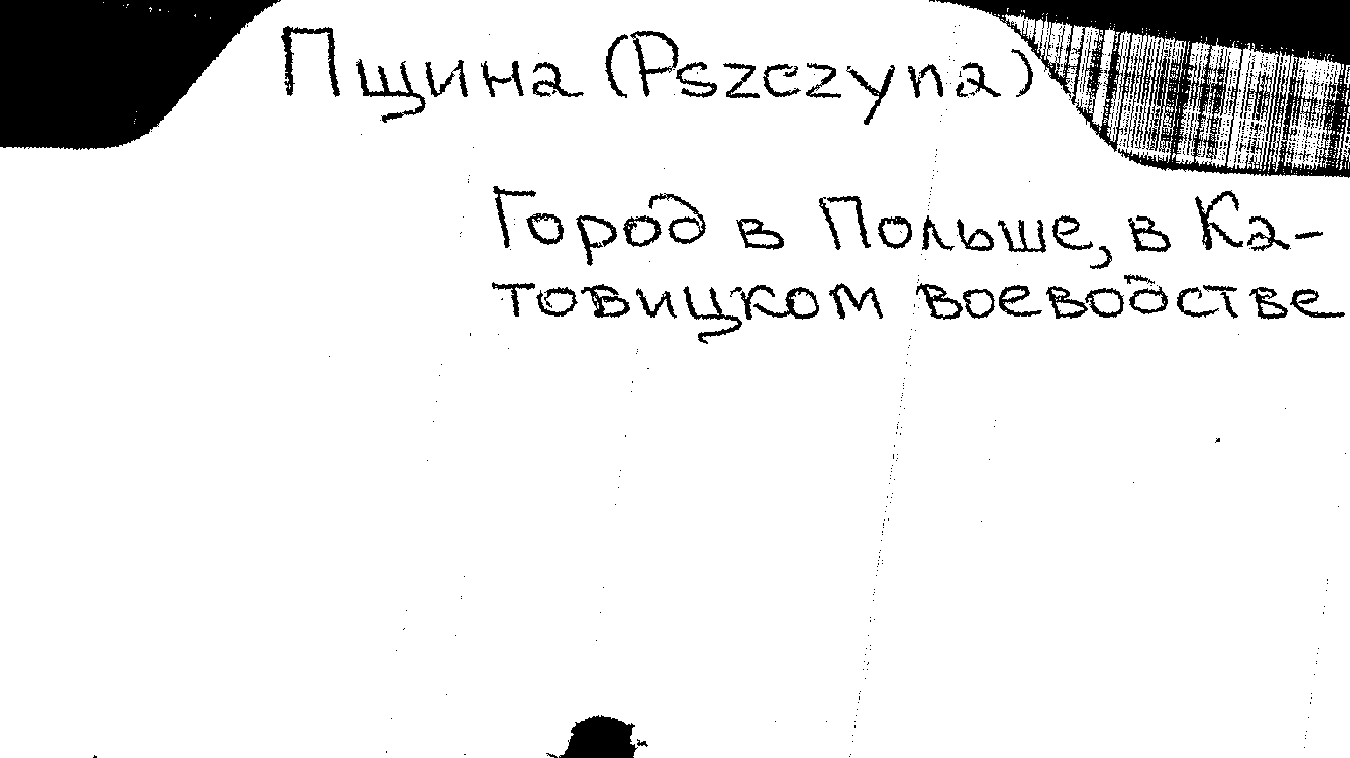 Пщина (Pszczyna)
Город в Польше, в Ка-
товицком воеводстве